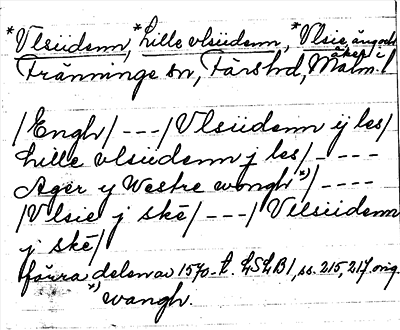 *Vlsiidenn, *Lille vlsiidenn, *Vlsie äng och
åker i
Tränninge sn, Färs hd, Malm. l
/Engh/ - - -/ Vlsiidenn ij les/
Lille vlsiidenn j les/ - - - -
Ager y Westre wongh x)/ - - - -
/Vlsie j ské/ - - -/ Vlsiidenn
j ské/
förra delen av 1570-t. LSLB1, ss. 215, 217. orig.
x) wangh.